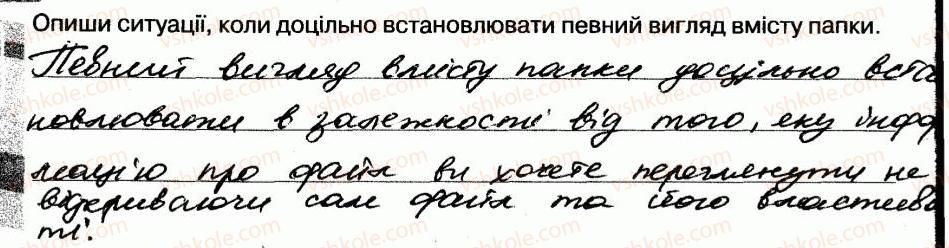 Опиши ситуації, коли доцільно встановлювати певний вигляд вмісту папки.
Певний вигляд вмісту папки доцільно вста
новлювати в залежності від того, яку інфор
мацію про файл ви хочете переглянути не
відкриваючи сам файл та його властивос
ті.